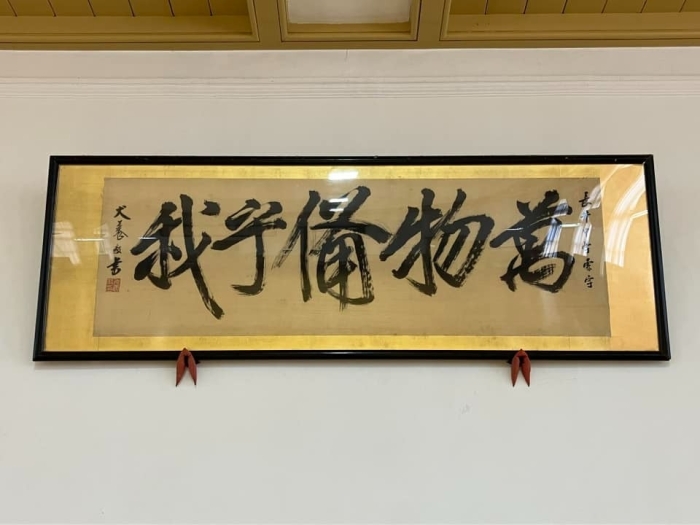 萬物備乎我
犬養毅書